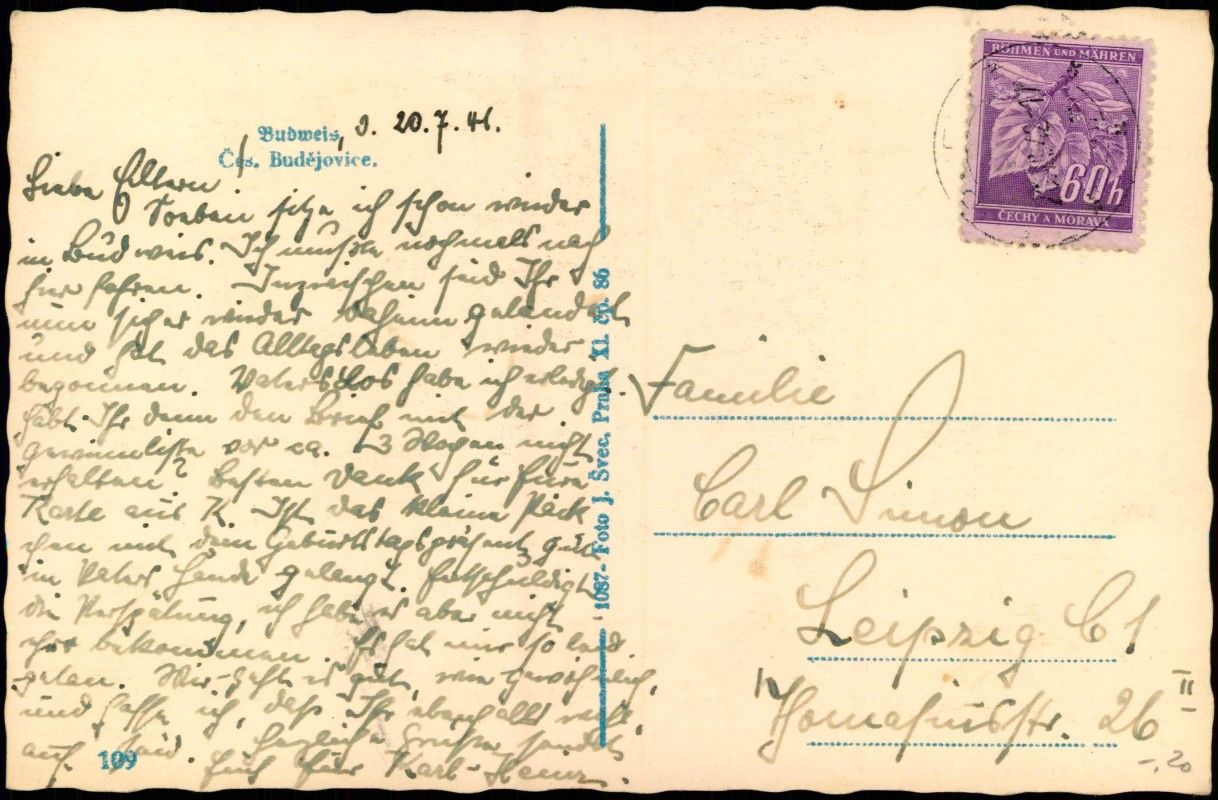 Budweis, d. 20.7.41.
Čes. Budějovice.
Liebe Eltern!
Soeben sitze ich schon wieder
in Budweis. Ich mußte nochmals nach
hier fahren. Inzwischen seid Ihr
nun sicher wieder daheim gelandet
und hat das Alltagsleben wieder
begonnen. Vaters Los habe ich erledigt.
Habt Ihr denn den Brief mit der
Gewinnliste vor ca. 3 Wochen nicht
erhalten? Besten Dank für Eure
Karte aus K. Ist das kleine Päck
chen mit dem Geburtstagspräsent gut
in Vaters Hände gelangt. Entschuldigt
die Verspätung, ich habe es aber nicht
eher bekommen. Es hat mir so leid
getan. Mir geht es gut, wie gewöhnlich,
und hoffe ich, daß Ihr ebenfalls wohl
auf seid. Herzliche Grüße sendet
Euch Euer Karl-Heinz.
109
1087 - Foto J. Švec, Praha XI. čp. 86
BÖHMEN UND MÄHREN
60h
ČECHY A MORAVA
Familie
Carl Simon
Leipzig C1
Thomasiusstr. 26 II
-.20